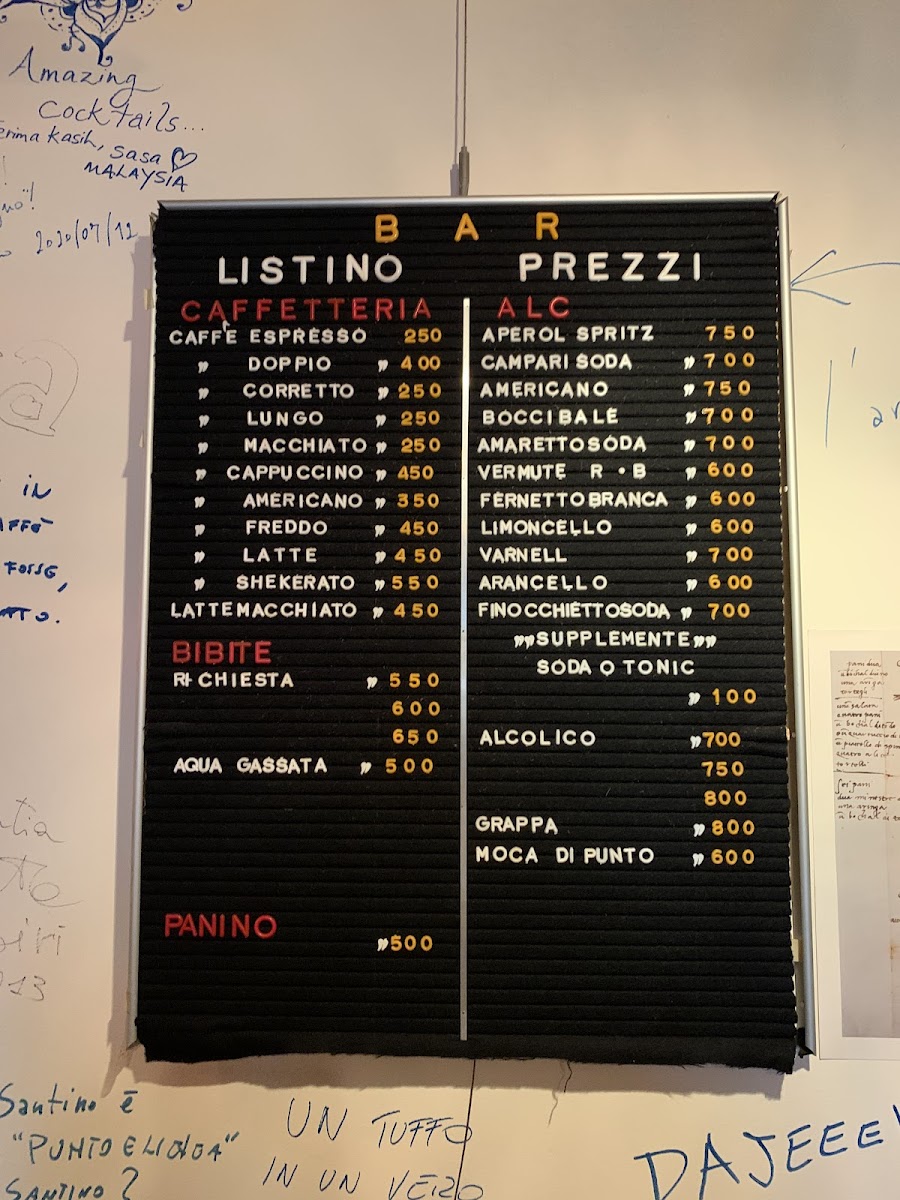 Amazing
Cocktails...
erima kasih, sasa
MALAYSIA
2020/07/12
BAR
LISTINO PREZZI
CAFFETTERIA
CAFFÈ ESPRESSO 250
" DOPPIO " 400
" CORRETTO " 250
" LUNGO " 250
" MACCHIATO " 250
" CAPPUCCINO " 450
" AMERICANO " 350
" FREDDO " 450
" LATTE " 450
" SHEKERATO " 550
LATTEMACCHIATO " 450
BIBITE
RICHIESTA " 550
600
650
AQUA GASSATA " 500
PANINO
" 500
ALC
APEROL SPRITZ 750
CAMPARI SODA " 700
AMERICANO " 750
BOCCIBALE " 700
AMARETTOSODA " 700
VERMUTE R • B " 600
FERNETTOBRANCA " 600
LIMONCELLO " 600
VARNELL " 700
ARANCELLO " 600
FINOCCHIETTOSODA " 700
""SUPPLEMENTE""
SODA O TONIC
" 100
ALCOLICO " 700
750
800
GRAPPA " 800
MOCA DI PUNTO " 600
IN
AFFÈ
FOSSE,
ATTO.
13
Santino è
SANTINO?
UN TUFFO
IN UN VERO
DAJEEE